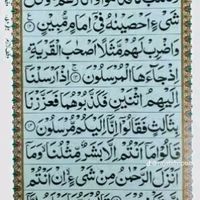 شَيْءٍ أَحْصَيْنٰهُ فِيْٓ إِمَامٍ مُّبِيْنٍ
وَاضْرِبْ لَهُمْ مَّثَلًا أَصْحٰبَ الْقَرْيَةِ
إِذْ جَآءَهَا الْمُرْسَلُوْنَ إِذْ أَرْسَلْنَآ
إِلَيْهِمُ اثْنَيْنِ فَكَذَّبُوْهُمَا فَعَزَّزْنَا
بِثَالِثٍ فَقَالُوْٓا إِنَّآ إِلَيْكُمْ مُّرْسَلُوْنَ
قَالُوْا مَآ أَنْتُمْ إِلَّا بَشَرٌ مِّثْلُنَا وَمَآ
أَنْزَلَ الرَّحْمٰنُ مِنْ شَيْءٍ إِنْ أَنْتُمْ